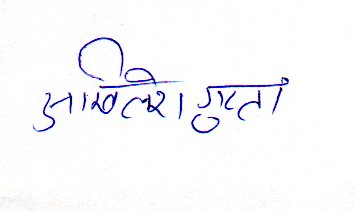 अखिलेश गुप्ता